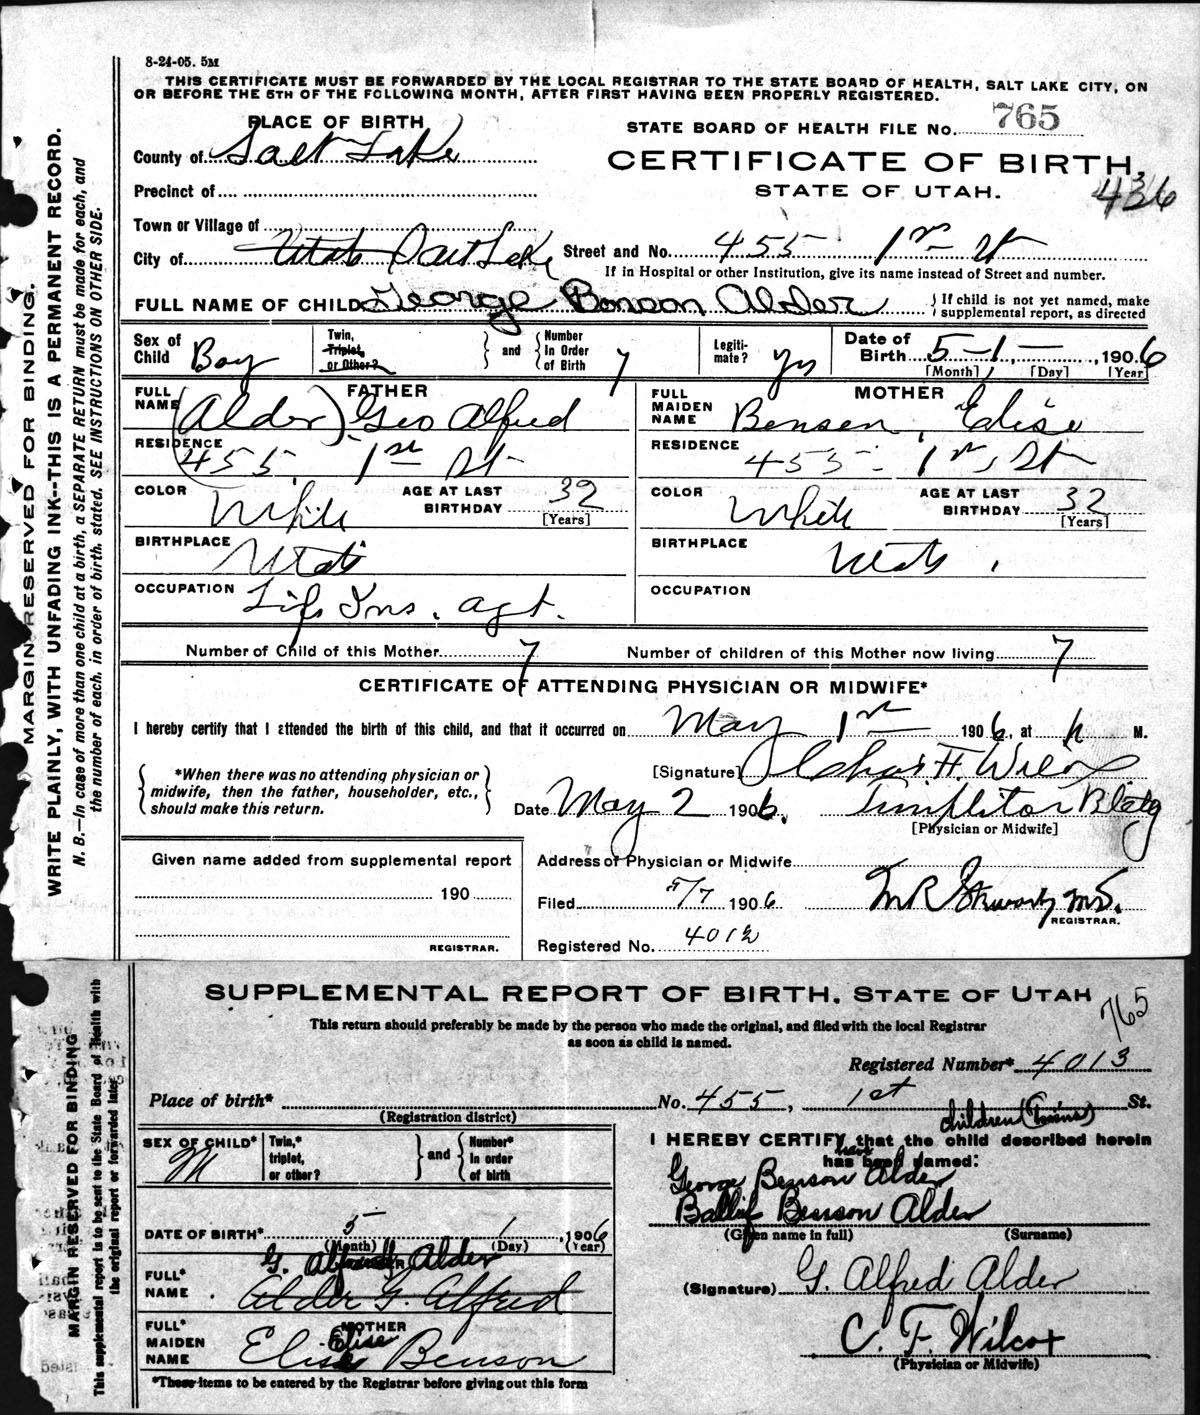 8-24-05. 5M
THIS CERTIFICATE MUST BE FORWARDED BY THE LOCAL REGISTRAR TO THE STATE BOARD OF HEALTH, SALT LAKE CITY, ON
OR BEFORE THE 5TH OF THE FOLLOWING MONTH, AFTER FIRST HAVING BEEN PROPERLY REGISTERED.
PLACE OF BIRTH
STATE BOARD OF HEALTH FILE No. 765
County of Salt Lake
CERTIFICATE OF BIRTH,
Precinct of
STATE OF UTAH.
436
Town or Village of
City of Utah Salt Lake Street and No. 455 1st St
If in Hospital or other Institution, give its name instead of Street and number.
FULL NAME OF CHILD George Benson Alder } If child is not yet named, make supplemental report, as directed
Sex of Child Boy Twin, Triplet, or Other? } and { Number In Order of Birth 7 Legiti-mate? Yes Date of Birth 5-1- , 1906
[Month] [Day] [Year]
FATHER
FULL NAME (Alder) Geo Alfred
RESIDENCE 455 1st St
COLOR White AGE AT LAST BIRTHDAY 32 [Years]
BIRTHPLACE Utah
OCCUPATION Life Ins. agt.
MOTHER
FULL MAIDEN NAME Benson, Elise
RESIDENCE 455 1st, St
COLOR White AGE AT LAST BIRTHDAY 32 [Years]
BIRTHPLACE Utah
OCCUPATION
Number of Child of this Mother 7 Number of children of this Mother now living 7
CERTIFICATE OF ATTENDING PHYSICIAN OR MIDWIFE*
I hereby certify that I attended the birth of this child, and that it occurred on May 1st 1906, at M.
{ *When there was no attending physician or midwife, then the father, householder, etc., should make this return. }
[Signature] Chas F. Wilcox
Date May 2 1906. Templeton Bldg
[Physician or Midwife]
Given name added from supplemental report
190
REGISTRAR.
Address of Physician or Midwife
Filed 5/7 1906 M R Stewart, M.D.
REGISTRAR.
Registered No. 4012
MARGIN RESERVED FOR BINDING.
WRITE PLAINLY, WITH UNFADING INK--THIS IS A PERMANENT RECORD.
N. B.—In case of more than one child at a birth, a SEPARATE RETURN must be made for each, and
the number of each, in order of birth, stated. SEE INSTRUCTIONS ON OTHER SIDE.
SUPPLEMENTAL REPORT OF BIRTH, STATE OF UTAH
765
This return should preferably be made by the person who made the original, and filed with the local Registrar
as soon as child is named.
Registered Number* 4013
Place of birth* No. 455, 1st St.
(Registration district)
SEX OF CHILD* M Twin,* triplet, or other? } and { Number* In order of birth
DATE OF BIRTH* 5 1 , 1906
(Month) (Day) (Year)
G. Alfred Alder
FULL* NAME Alder G. Alfred
MOTHER
Elise
FULL* MAIDEN NAME Elise Benson
*These items to be entered by the Registrar before giving out this form
children (Twins)
I HEREBY CERTIFY that the child described herein
have
has been named:
George Benson Alder
Ballif Benson Alder
(Given name in full) (Surname)
(Signature) G. Alfred Alder
C. F. Wilcox
(Physician or Midwife)
MARGIN RESERVED FOR BINDING
This supplemental report is to be sent to the State Board of Health with
the original report or forwarded later.